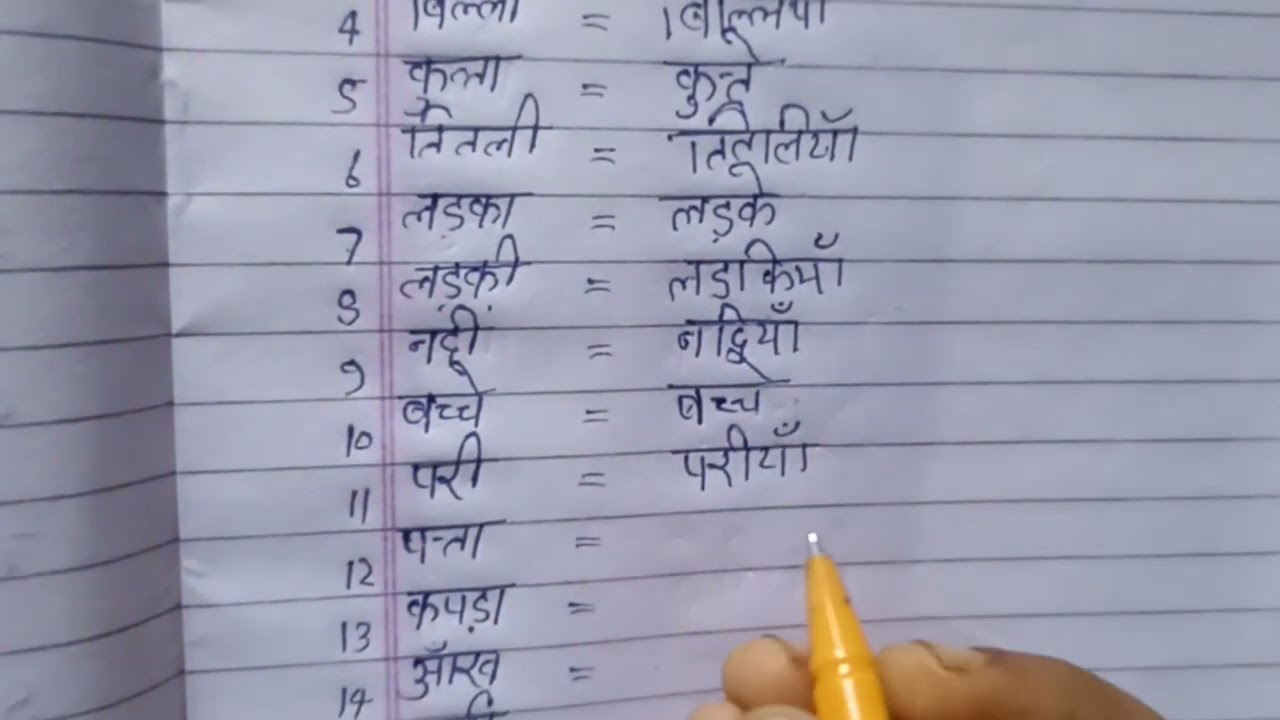 4 बिल्ली = बिल्लियाँ
5 कुत्ता = कुत्ते
6 तितली = तितलियाँ
7 लड़का = लड़के
8 लड़की = लडकियाँ
9 नदी = नदियाँ
10 बच्चे = बच्चे
11 परी = परीयाँ
12 पत्ता =
13 कपड़ा =
14 आँख =